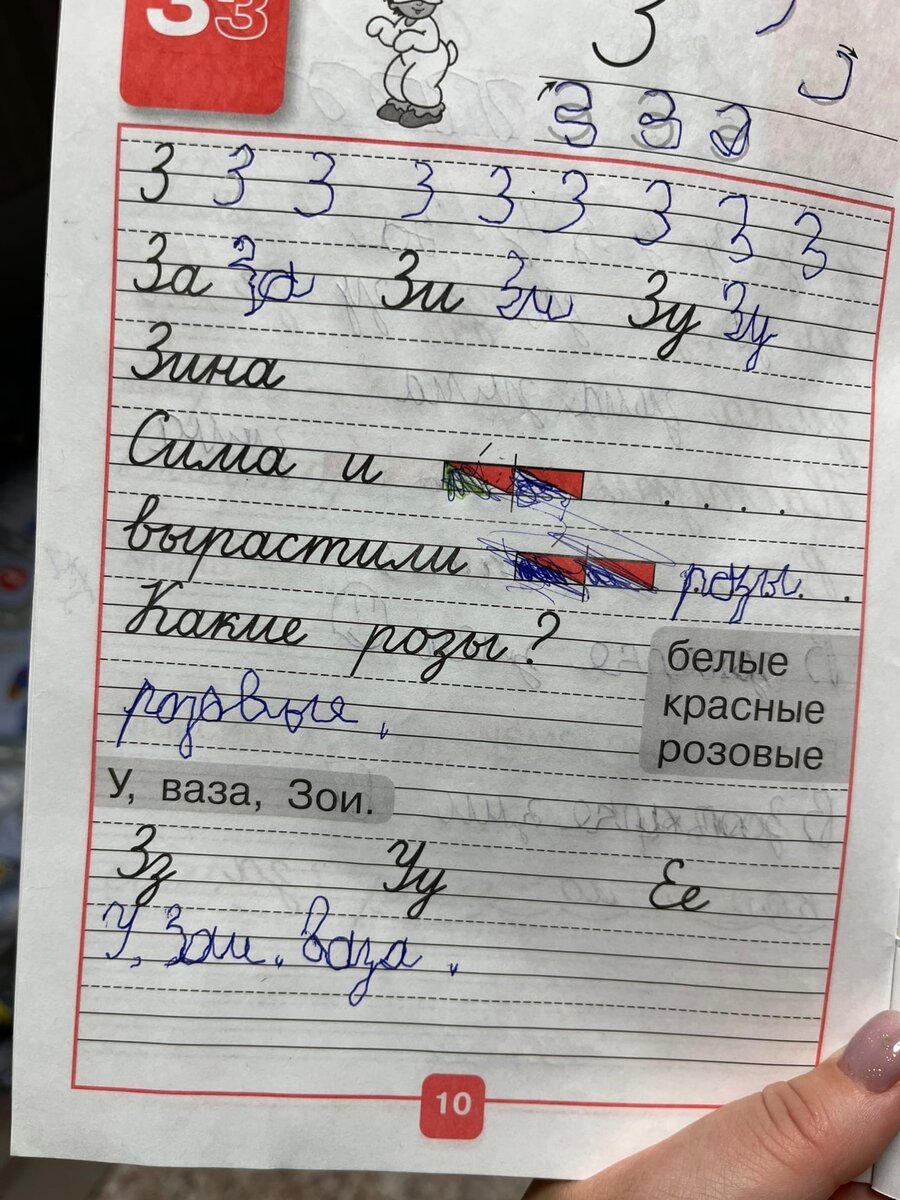 З З
З
З З З
З З З З З З З З З
За За Зи Зи Зу Зу
Зина
Сима и . . . .
вырастили розы. . .
Какие розы?
белые
красные
розовые
розовые.
У, ваза, Зои.
Зз Уу Ее
У, Зои, ваза.
10